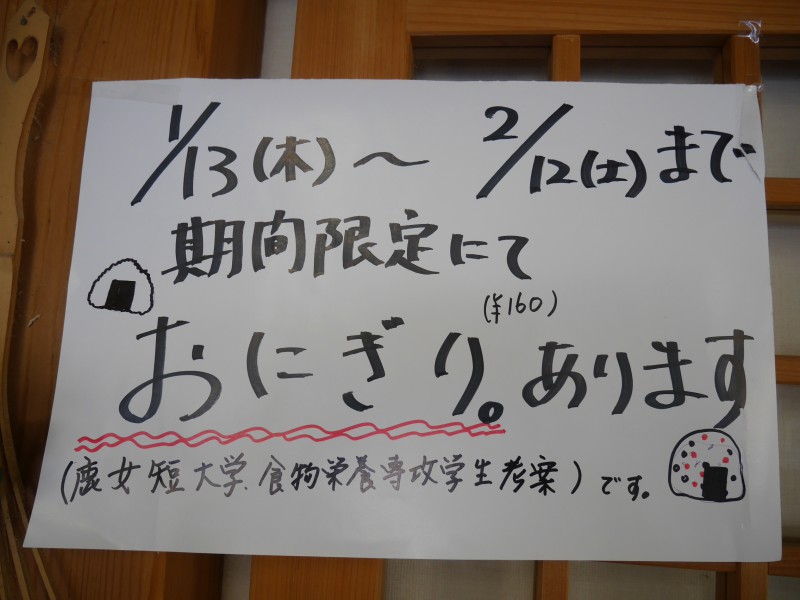 1/13(木)～2/12(土)まで
期間限定にて
(¥160)
おにぎり。あります
(鹿女短大学、食物栄養専攻学生考案)です。